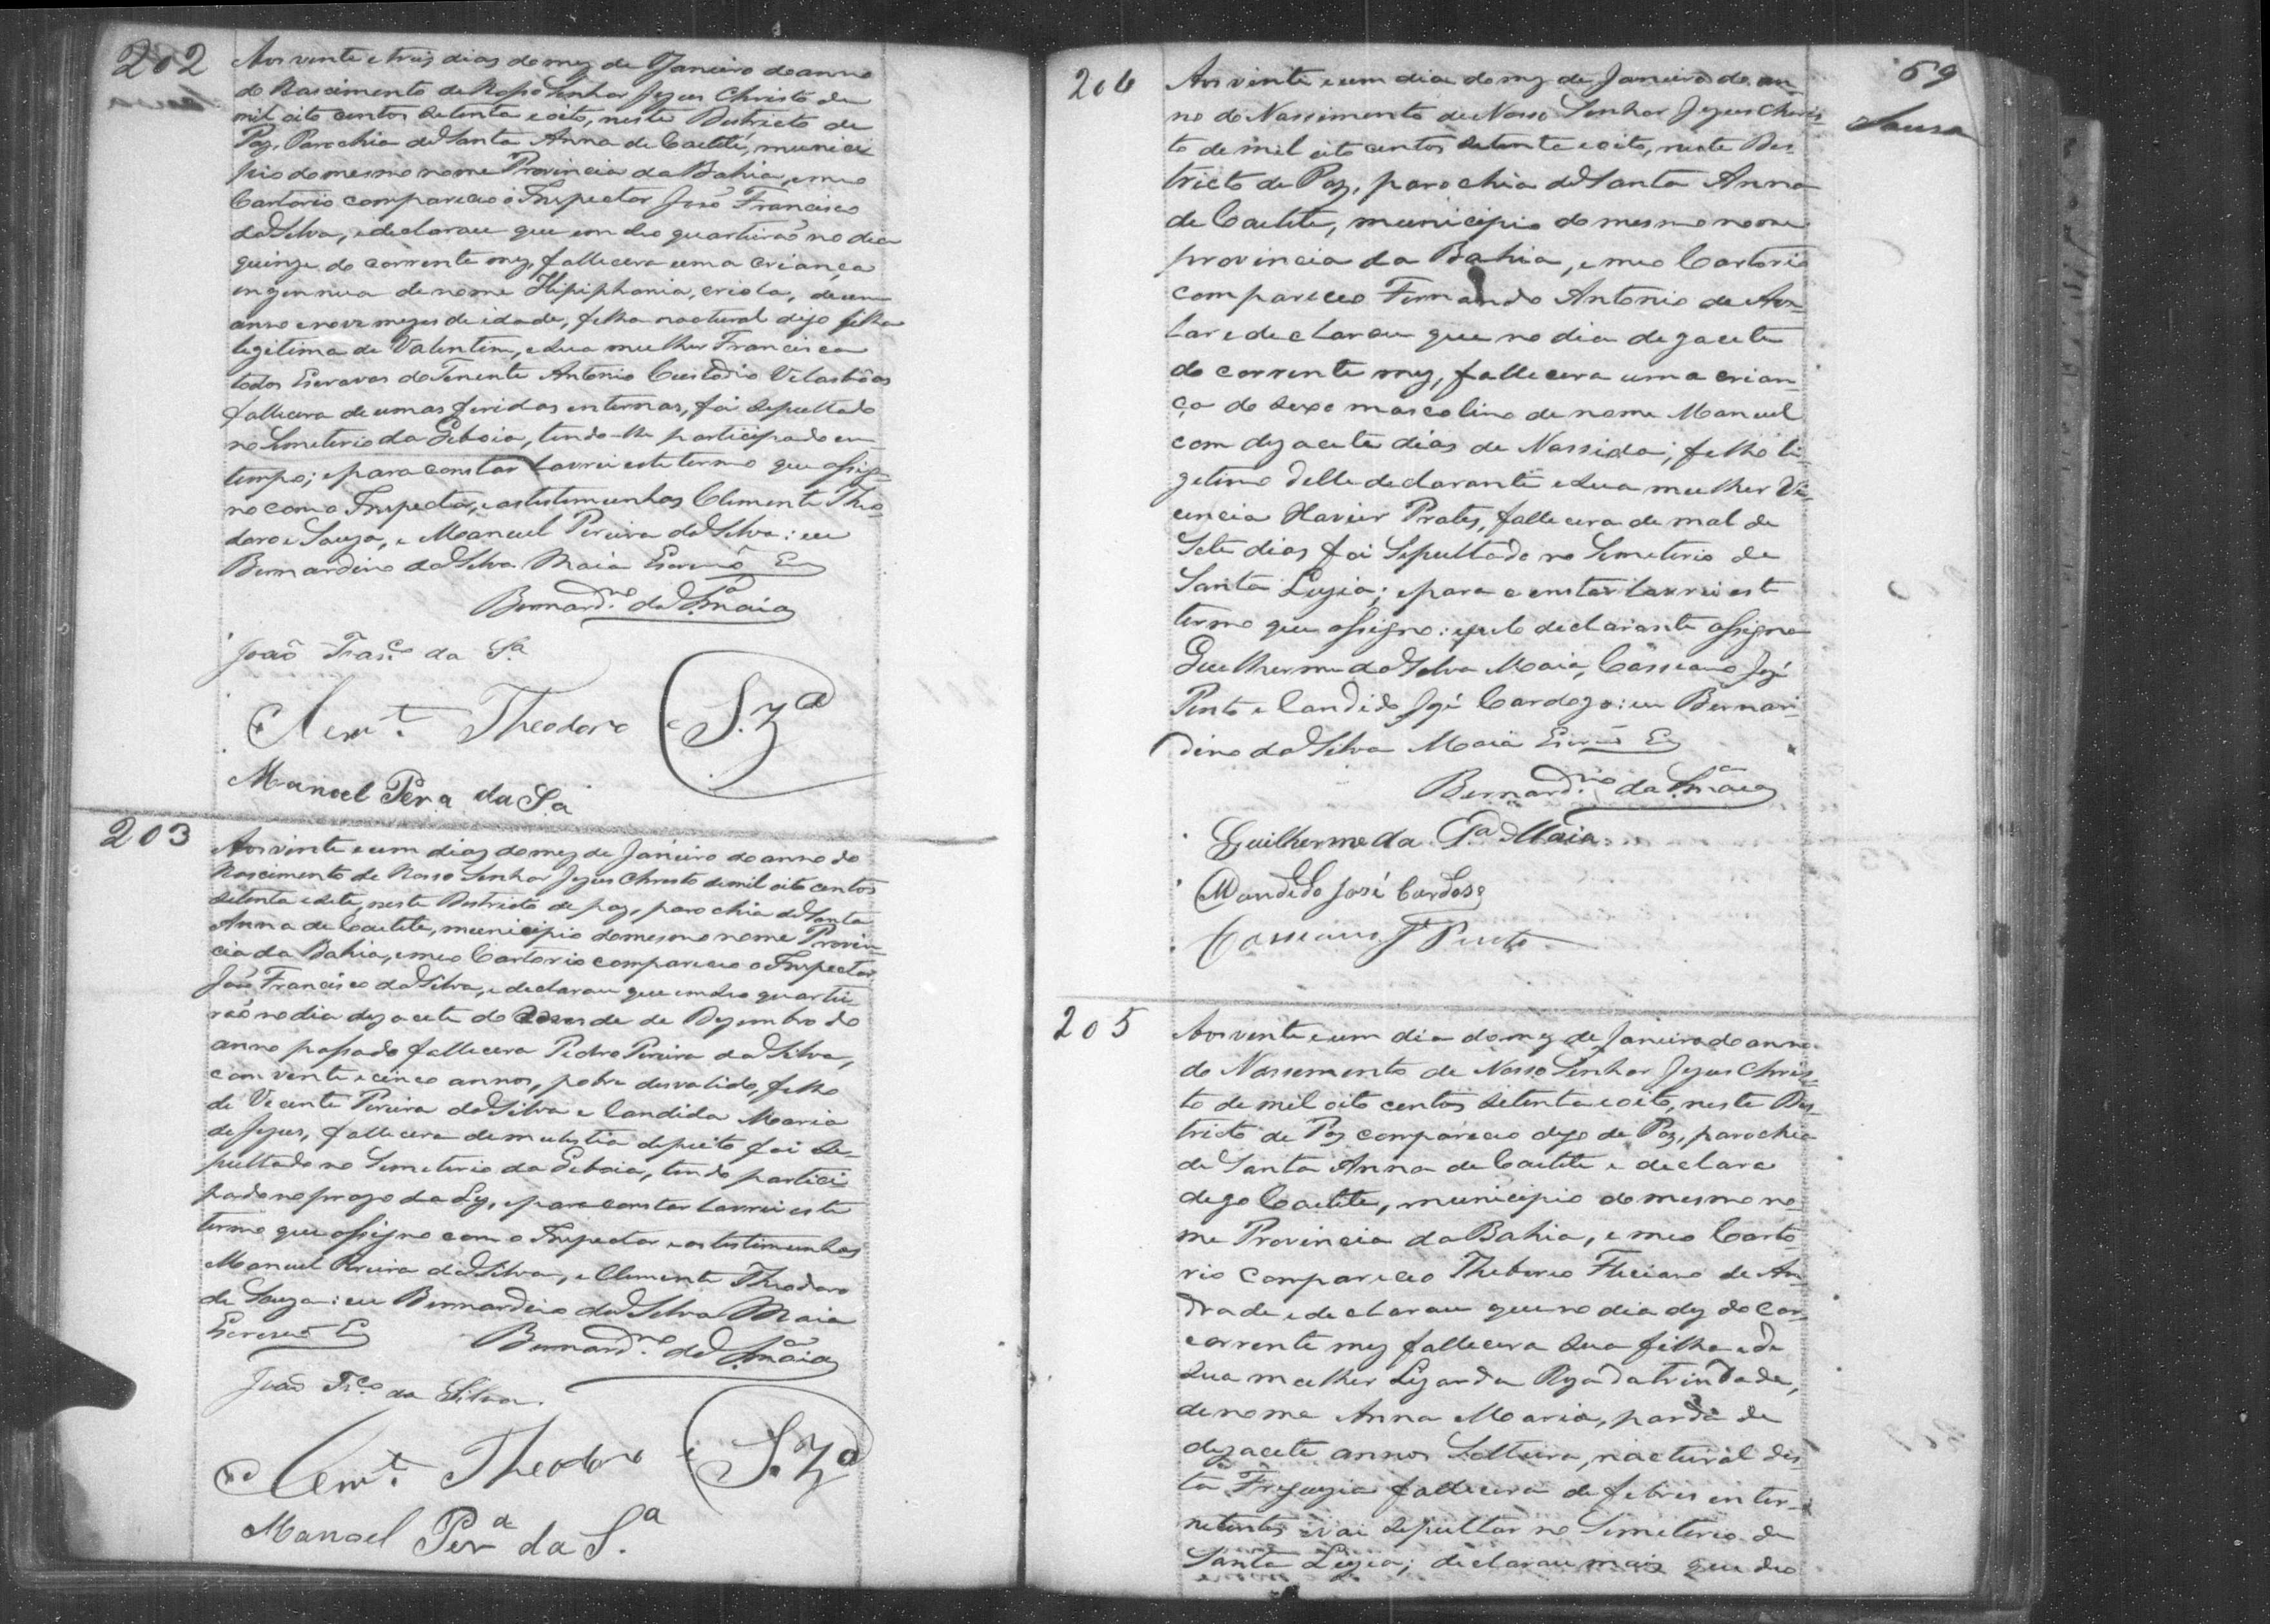 202
Aos vinte e tres dias do mez de Janeiro do anno
do Nascimento de Nosso Senhor Jezus Christo de
mil oito centos setenta e oito, neste Destricto de
Paz, Parochia de Santa Anna de Caetité, munici
pio do mesmo nome Provincia da Bahia, e meo
Cartorio compareceo o Inspector João Francisco
da Silva, e declarou que em seo quarteirão no dia
quinze do corrente mez, fallecera uma criança
ingennua de nome Hipiphania, criola, de um
anno e nove mezes de idade, filha nactural digo filha
legitima de Valentim, e sua mulher Francisca
todos Escravos do Tenente Antonio Custodio Vilasbôas
fallecera de umas feridas internas, foi sepultado
no Semeterio da Giboia, tendo-lhe participado em
tempo; e para constar lavrei este termo que assig
no com o Inspector, e as testimunhas Clemente Theo
doro e Souza, e Manuel Pereira da Silva: eu
Bernardino da Silva Maia Escrivão Es
Bernard.no da S.a Maia
João Fran.co da S.a
Clem.te Theodoro e S.za
Manoel Per.a da S.a
203
Aos vinte e um dias do mez de Janeiro do anno do
Nascimento de Nosso Senhor Jezus Christo de mil oito centos
setenta e sete, neste Destricto de paz, parochia de Santa
Anna de Caetite, municipio do mesmo nome Provin
cia da Bahia, e meo Cartorio compareceo o Inspector
João Francisco da Silva, e declarou que em seo quartei
rão no dia dezacete do de Dezembro do
anno passado fallecera Pedro Pereira da Silva,
com vente e cinco annos, pobre desvalido, filho
de Vicente Pereira da Silva e Candida Maria
de Jezus, fallecera de mulestia de peito foi se-
pultado no Semeterio da Giboia, tendo partici
pado no prazo da Ley, e para constar lavrei este
termo que assigno com o Inspector e as testimunhas
Manuel Pereira da Silva, e Clemente Theodoro
de Souza: eu Bernardino da Silva Maia
Escrivão Es Bernard.no da S.a Maia
João Fr.co da Silva.
Clem.te Theodoro e S.za
Manoel Per.a da S.a
69
Sousa
204
Aos vinte e um dia do mez de Janeiro do an-
no do Nassimento de Nosso Senhor Jezus Chris-
to de mil oito centos setente e oito, neste Des-
tricto de Paz, parochia de Santa Anna
de Caetite, municipio do mesmo nome
provincia da Bahia, e meo Cartorio
compareceo Fernando Antonio de
e declarou que no dia dezacete
do corrente mez, fallecera uma crian-
ça do sexo mascolino de nome Manuel
com dezacete dias de Nassido; filho li-
getimo delle declarante e sua mulher Vi-
cencia Xavier Prates, fallecera de mal de
Sete dias foi Sepultado no Semeterio de
Santa Luzia; e para constar lavrei est
termo que assigno: e pelo declarante assigna
Guilherme da Silva Maia, Cassiano José
Pinto e Candido José Cardozo: eu Bernar-
dino da Silva Maia Escrivão Es
Bernard.no da S.a Maia
Guilherme da S.a Maia
Candido José Cardoso
Cassiano J.e Pinto
205
Aos vente e um dia do mez de Janeiro do anno
do Nassemento de Nosso Senhor Jezus Chris-
to de mil oito centos setenta e oito, neste Des-
tricto de Paz compareceo digo de Paz, parochia
de Santa Anna de Caetite e declarao
digo Caetite, municipio do mesmo no-
me Provincia da Bahia, e meo Carto-
rio compareceo Theborcio Fliciano de An-
drade e declarou que no dia dez do cor-
corrente mez fallecera sua filha e de
sua mulher Lizarda Roza da trindade,
de nome Anna Maria, parda de
dezacete annos Solteira, nactural des-
ta Freguezia fallecera de febres enter-
netentes e vai sepultar no Semeterio de
Santa Luzia; declarou mais que seo